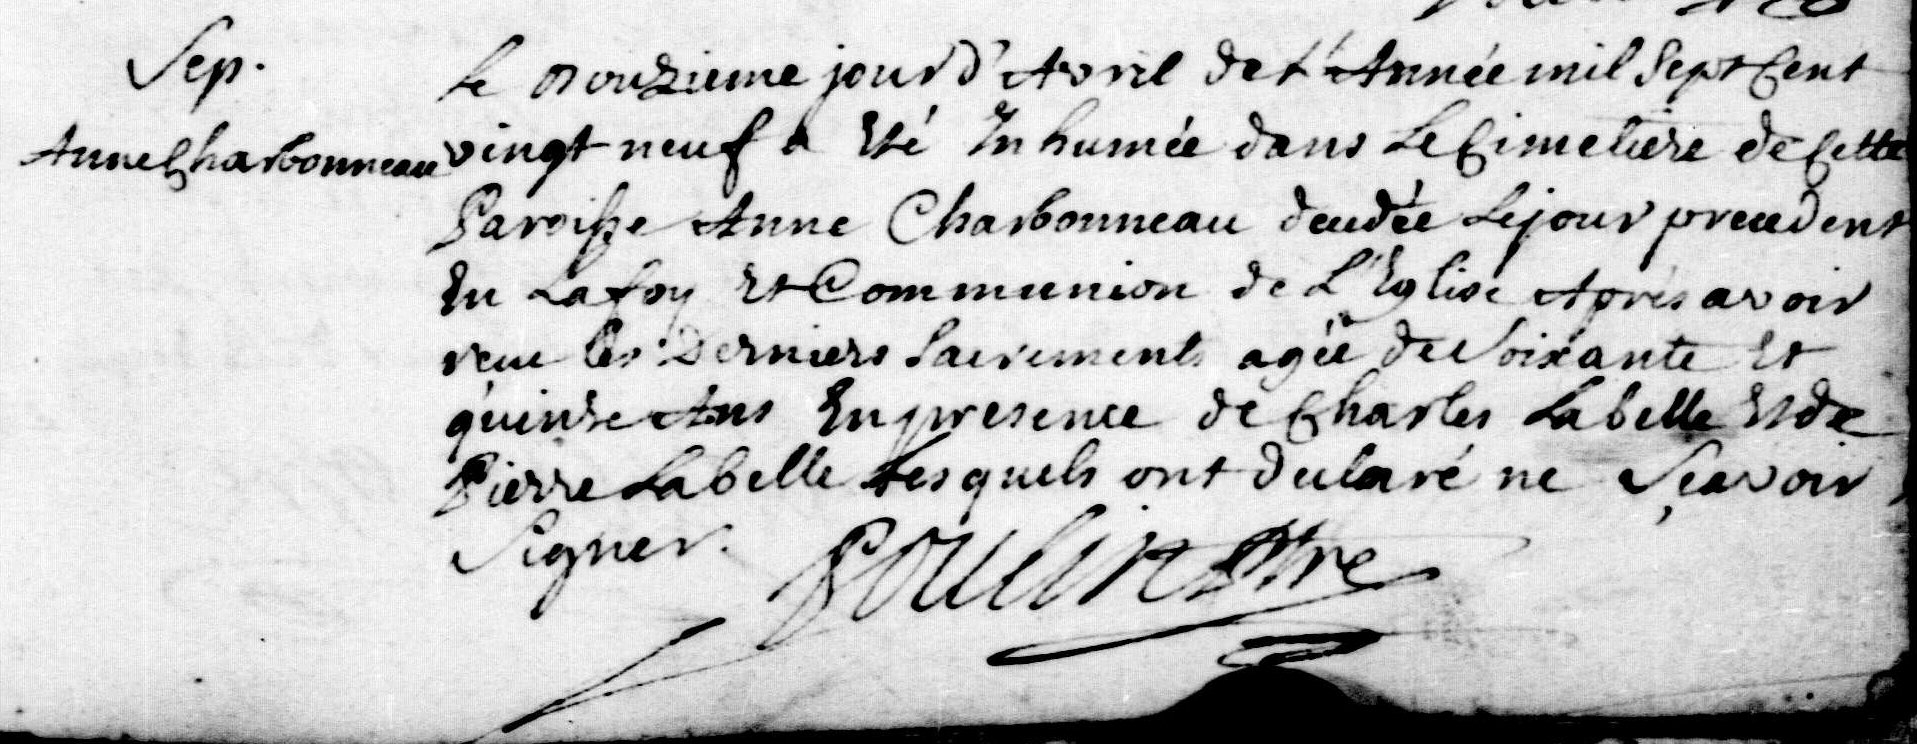 Sep.
Anne Charbonneau
Le onzieme jour d'Avril de l'Année mil Sept Cent
vingt neuf a Eté Inhumée dans Le Cimetiere de Cette
Paroisse Anne Charbonneau decedée Le jour precedent
En La foy Et Communion de L'Eglise Aprés avoir
reçu les Derniers Sacrements agée de Soixante Et
quinze Ans En presence de Charles Labelle Et de
Pierre Labelle Lesquels ont declaré ne Sçavoir
Signer.
Poulin Ptre